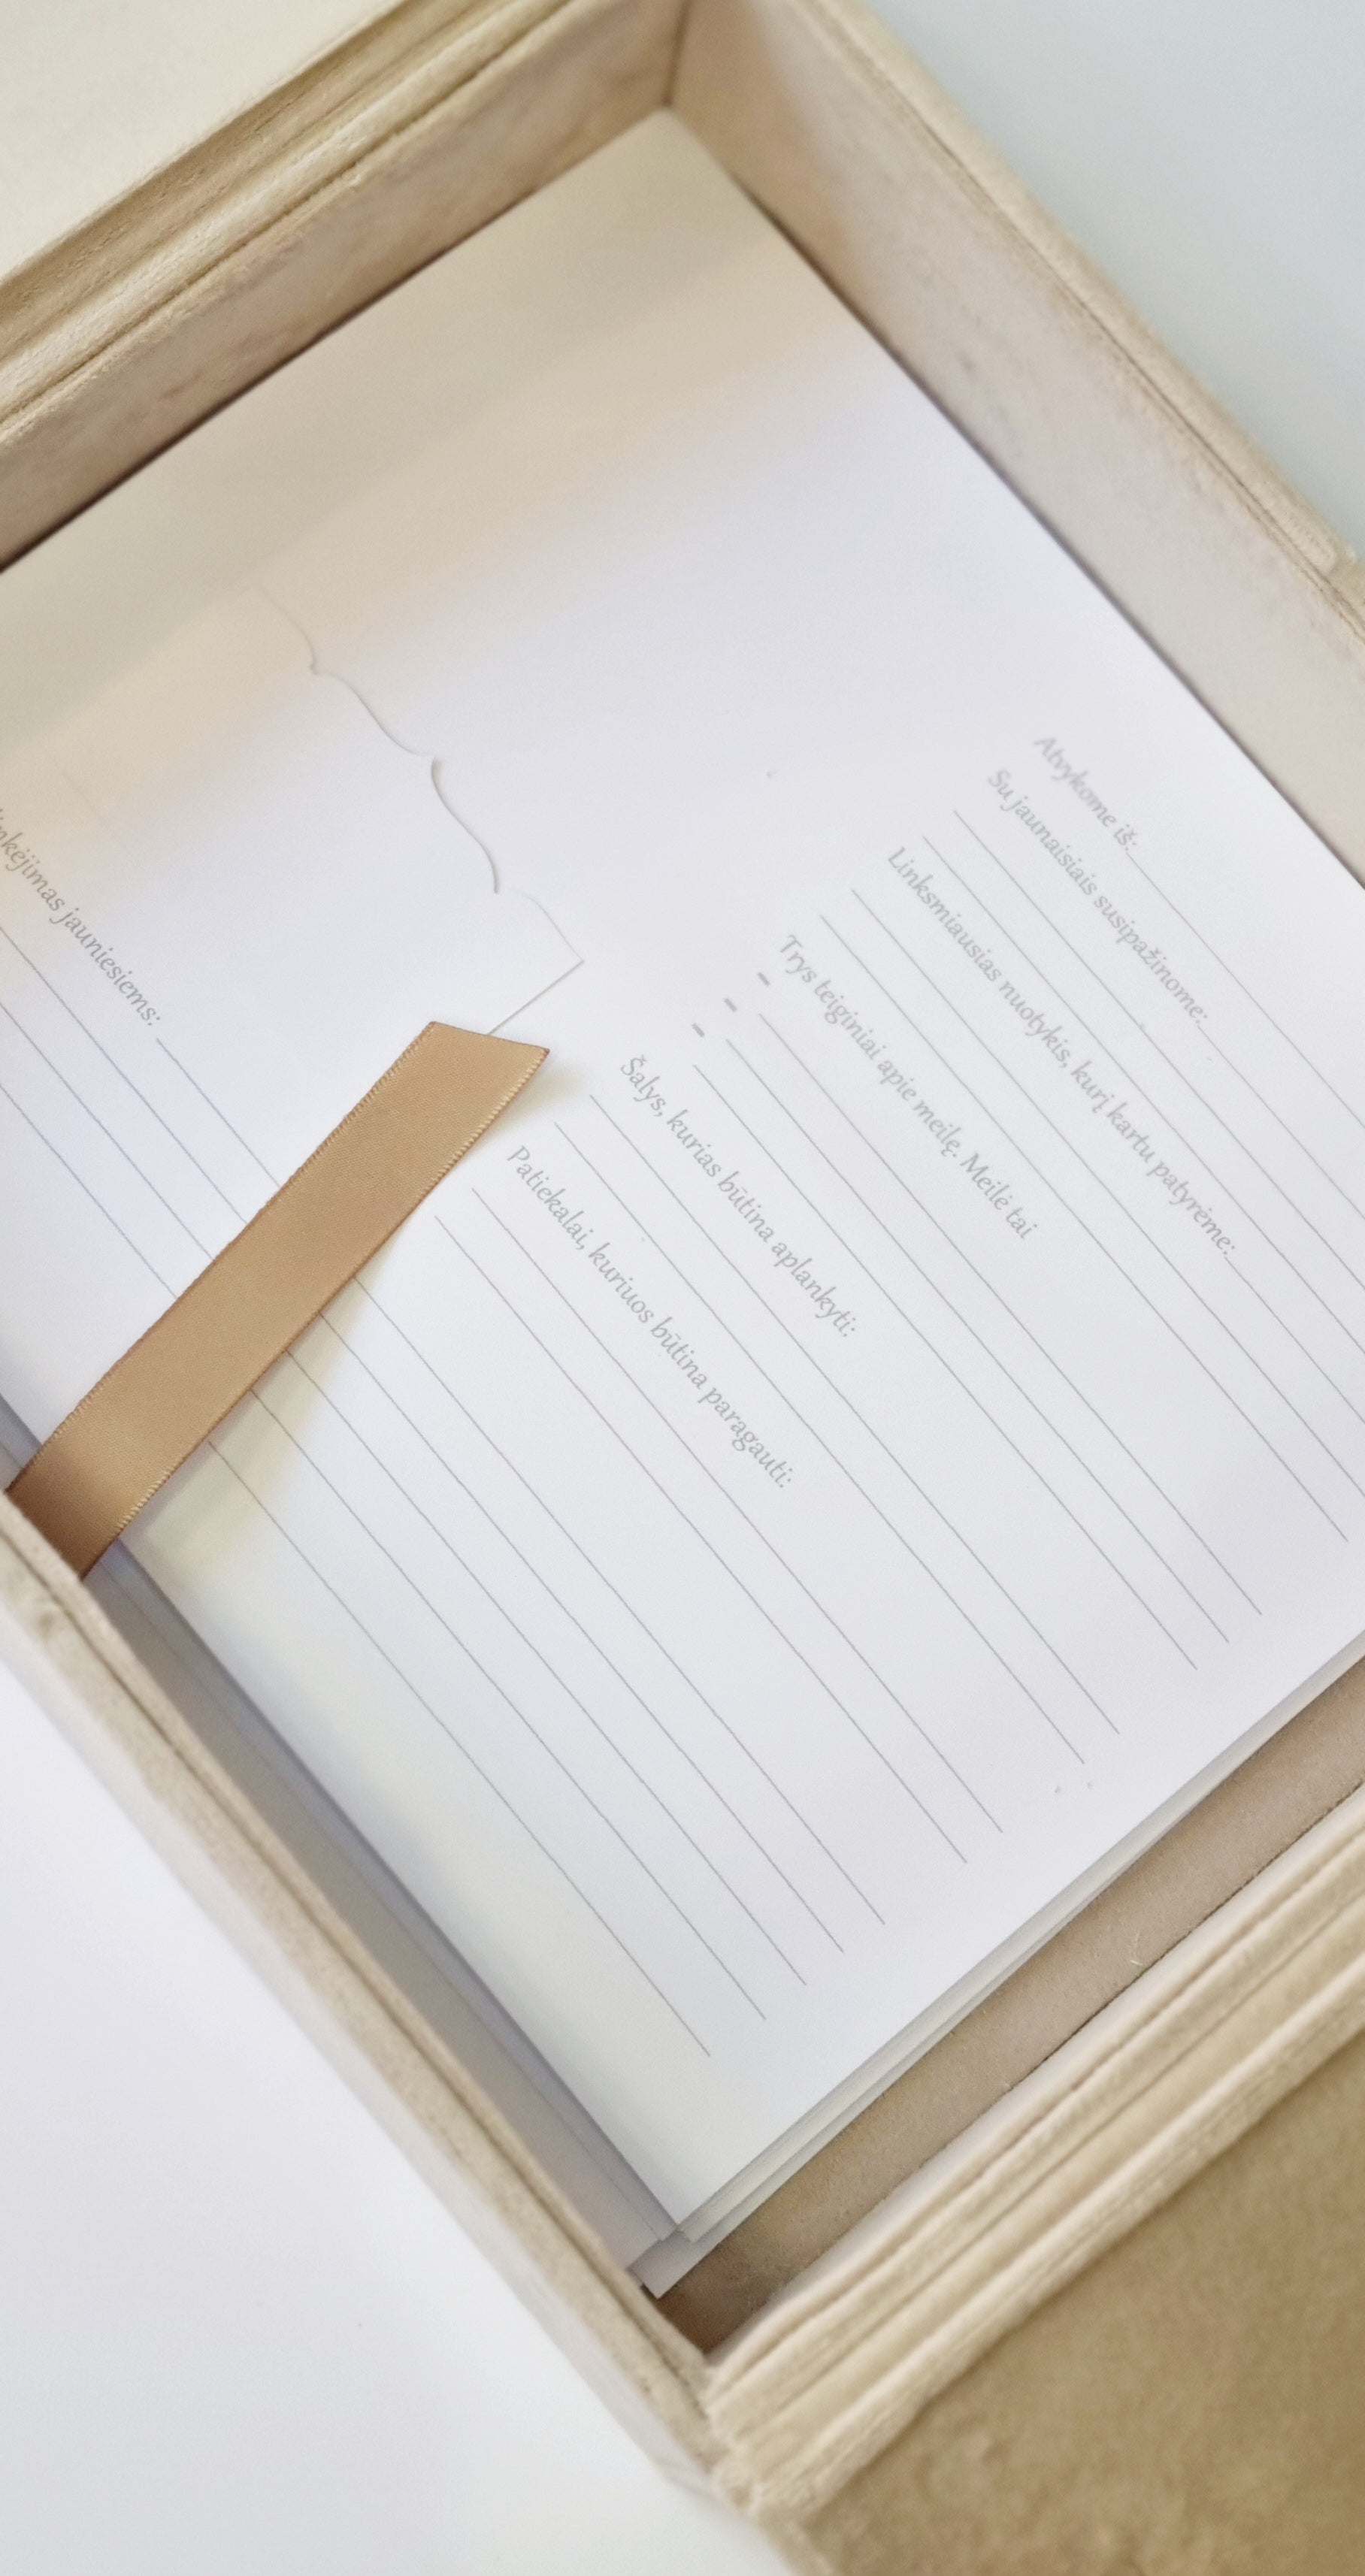 Atvykome iš:
Su jaunaisiais susipažinome:
Linksmiausias nuotykis, kurį kartu patyrėme:
Trys teiginiai apie meilę. Meilė tai
-
-
-
Šalys, kurias būtina aplankyti:
Patiekalai, kuriuos būtina paragauti:
jauniesiems: